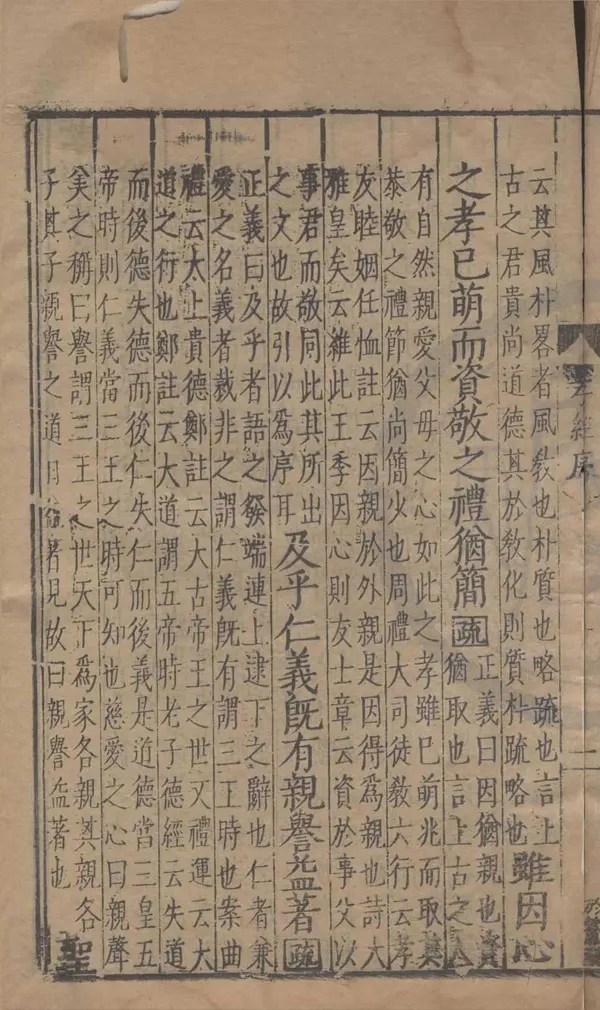 云其風朴畧者風敎也朴質也略䟽也言上
古之君貴尚道德其於敎化則質朴䟽略也
雖因心
之孝已萌而資敬之禮猶簡疏
正義曰因猶親也資
猶取也言上古之人
有自然親愛父母之心如此之孝雖已萌兆而取其
恭敬之禮節猶尚簡少也周禮大司徒敎六行云孝
友睦婣任恤註云因親於外親是因得爲親也詩大
雅皇矣云維此王季因心則友士章云資於事父以
事君而敬同此其所出
之文也故引以爲序耳
及乎仁義旣有親譽益著疏
正義曰及乎者語之發端連上逮下之辭也仁者兼
愛之名義者裁非之謂仁義旣有謂三王時也案曲
禮云太上貴德鄭註云大古帝王之世又禮運云大
道之行也鄭註云大道謂五帝時老子德經云失道
而後德失德而後仁失仁而後義是道德當三皇五
帝時則仁義當三王之時可知也慈愛之心曰親聲
美之稱曰譽謂三王之世天下爲家各親其親各
子其子親譽之道日益著見故曰親譽益著也
聖
經序